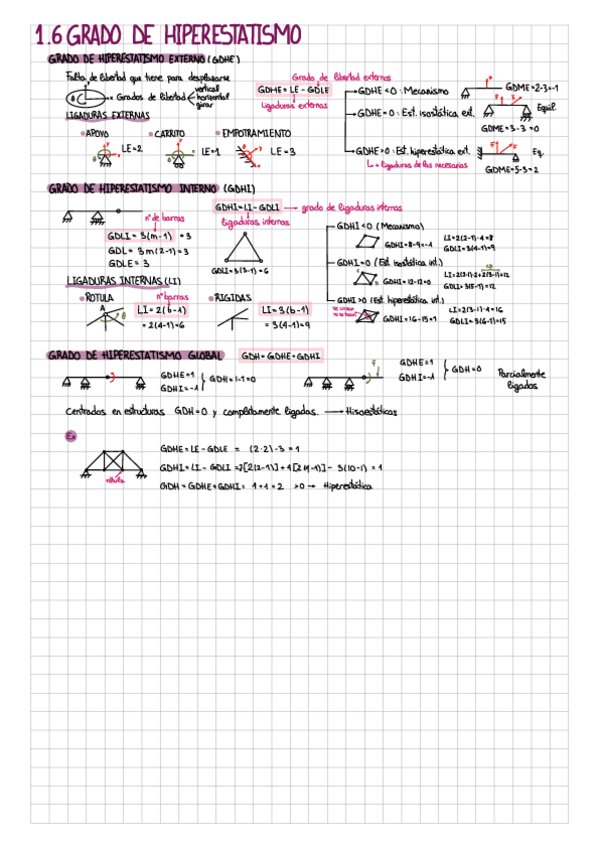 1.6 GRADO DE HIPERESTATISMO
GRADO DE HIPERESTATISMO EXTERNO (GDHE)
Falta de libertad que tiene para desplazarse
Grados de libertad
vertical
horizontal
girar
Grado de libertad externos
GDHE = LE - GDLE
Ligaduras externas
GDHE < 0 : Mecanismo
GDME = 2-3 = -1
GDHE = 0 : Est. isostática ext.
Equil.
GDME = 3-3 = 0
GDHE > 0 : Est. hiperestática ext.
Eq.
+ ligaduras de las necesarias
GDME = 5-3 = 2
LIGADURAS EXTERNAS
• APOYO
LE = 2
• CARRITO
LE = 1
• EMPOTRAMIENTO
LE = 3
GRADO DE HIPERESTATISMO INTERNO (GDHI)
GDHI = LI - GDLI → grado de ligaduras internas
ligaduras internas
nº de barras
GDLI = 3(m-1) = 3
GDL = 3m(2-1) = 3
GDLE = 3
GDLI = 3(3-1) = 6
GDHI < 0 (Mecanismo)
GDHI = 8-9 = -1
LI = 2(2-1)·4 = 8
GDLI = 3(4-1) = 9
GDHI = 0 (Est. isostática int.)
GDHI = 12-12 = 0
LI = 2(2-1)·2+2(3-1)=12
GDLI = 3(5-1) = 12
GDHI > 0 (Est. hiperestática int.)
GDHI = 16-15 = 1
LI = 2(3-1)·4 = 16
GDLI = 3(6-1) = 15
LIGADURAS INTERNAS (LI)
• ROTULA
nº barras
LI = 2(b-1)
= 2(4-1) = 6
• RIGIDAS
LI = 3(b-1)
= 3(4-1) = 9
GRADO DE HIPERESTATISMO GLOBAL
GDH = GDHE + GDHI
GDHE = 1
GDHI = -1
GDH = 1-1 = 0
GDHE = 1
GDHI = -1
GDH = 0
Parcialmente
ligados
Centrados en estructuras GDH = 0 y completamente ligadas. → Hisoestáticas
Ex
rótula
GDHE = LE - GDLE = (2·2) - 3 = 1
GDHI = LI - GDLI
- 3(10-1) = 1
GDH = GDHE + GDHI = 1+1 = 2 >0 → Hiperestática